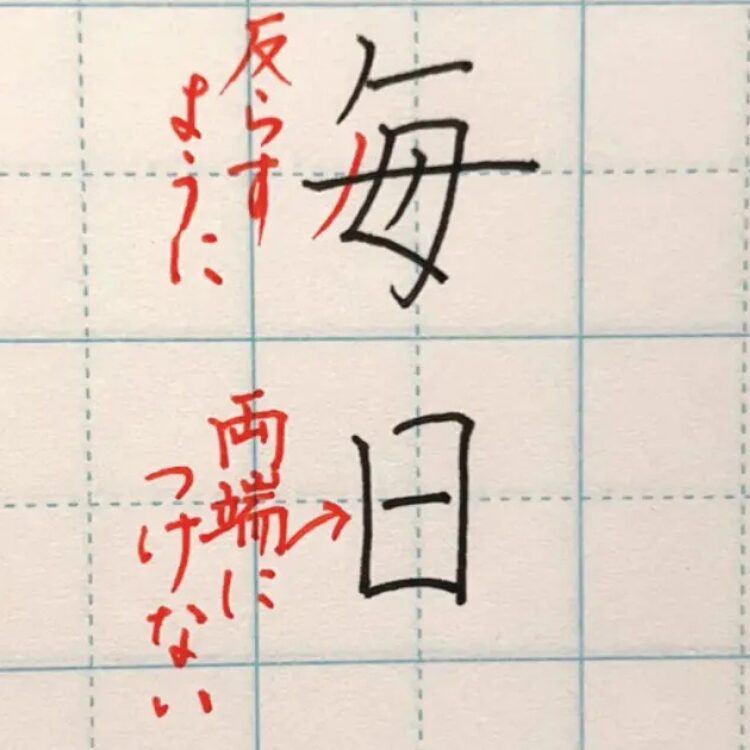 毎日
反らす
ように
両端に
つけない